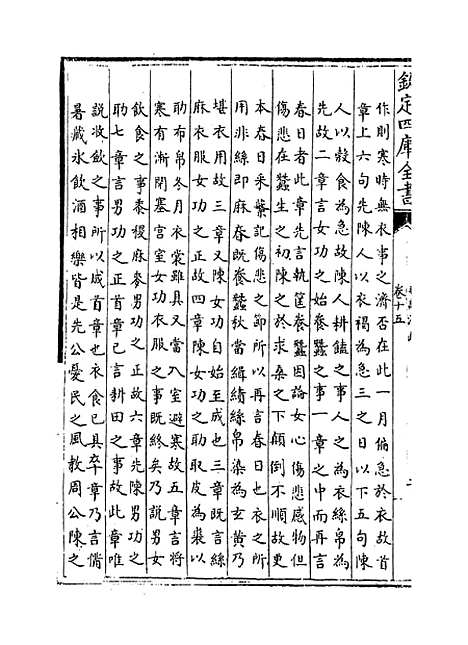 欽定四庫全書
卷十五
作則寒時無衣事之濟否在此一月偏急於衣故首
章上六句先陳人以衣褐為急三之日以下五句陳
人以穀食為急故陳人耕饁之事人之為衣絲帛為
先故二章言女功之始養蠶之事一章之中而再言
春日者此章先言執筐養蠶因論女心傷悲感物但
傷悲在蠶生之初陳之於求桑之下顛倒不順故更
本春日采蘩記傷悲之節所以再言春日也衣之所
用非絲即麻春既養蠶秋當緝績絲帛染為玄黃乃
堪衣用故三章又陳女功自始至成也三章既言絲
麻衣服女功之正故四章陳女功之助取皮為裘以
助布帛冬月衣裳雖具又當入室避寒故五章言將
寒有漸閉塞宫室女功衣服之事既終矣乃說男女
飲食之事黍稷麻麥男功之正故六章先陳男功之
助七章言男功之正首章已言耕田之事故此章唯
說收斂之事所以成首章也衣食已具卒章乃言備
暑藏氷飲酒相樂皆是先公憂民之風教周公陳之